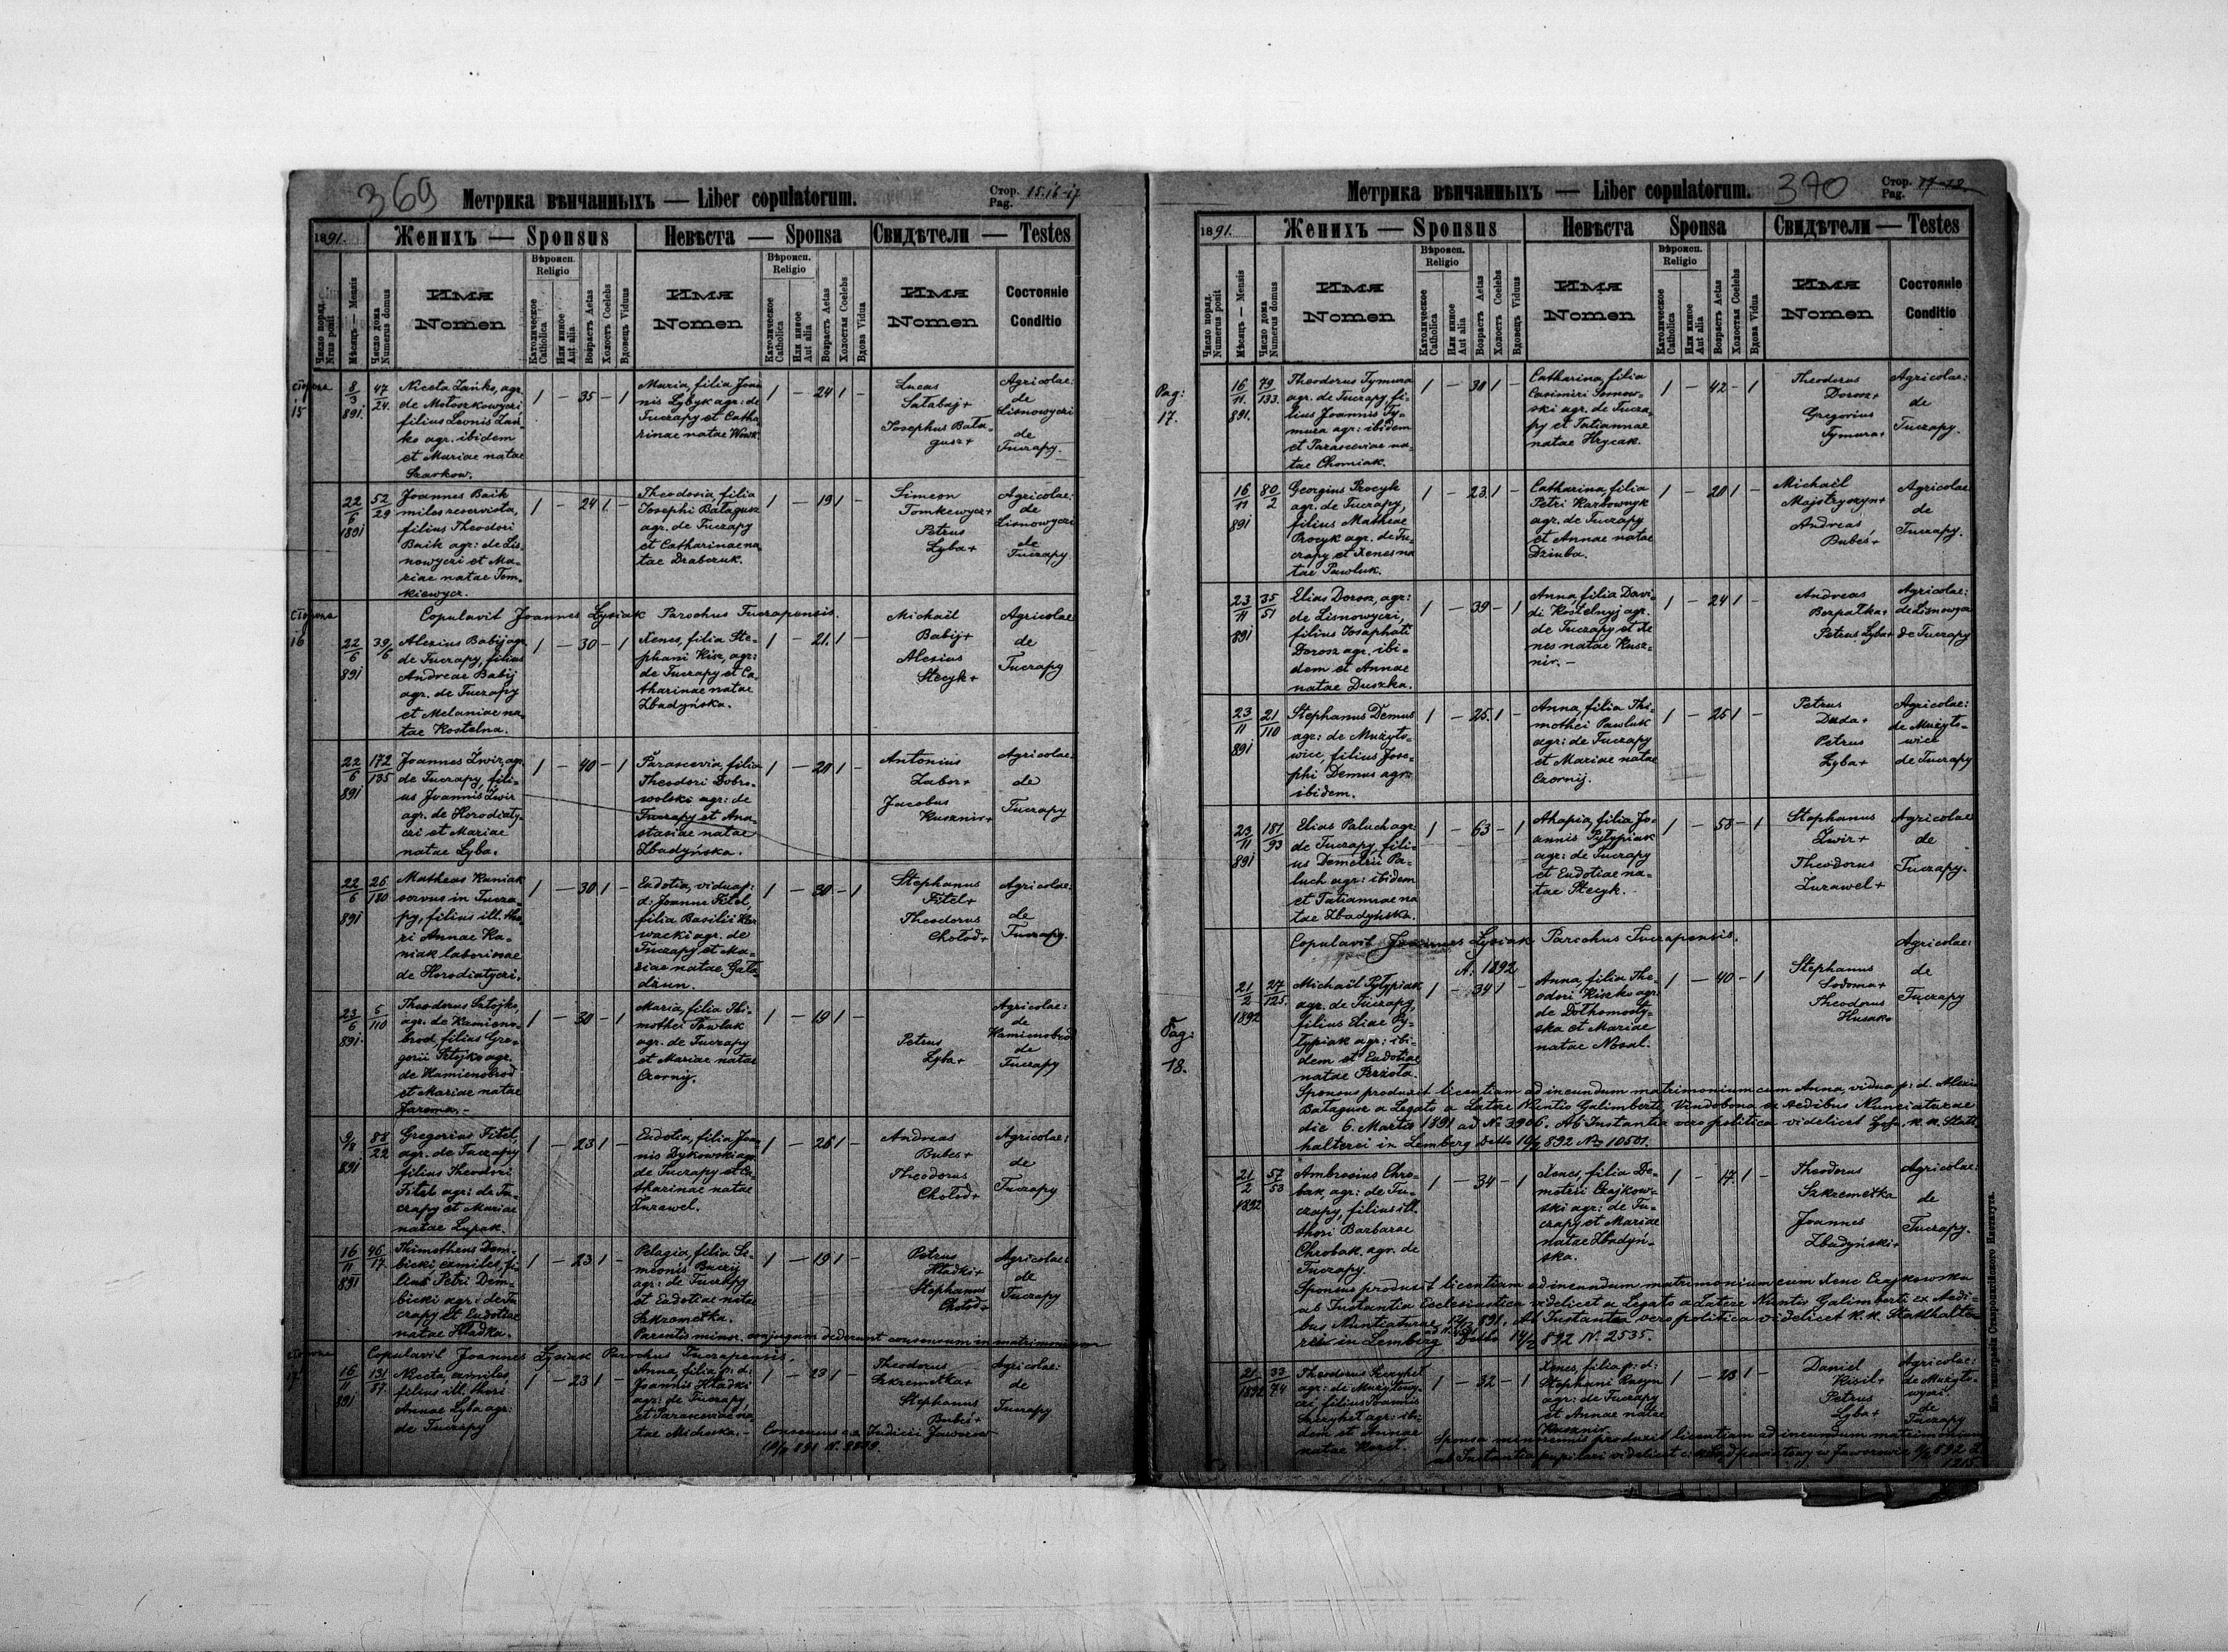 369
Метрика вѣнчанныхъ — Liber copulatorum.
Стор. Pag. 15.16-17
1891.
Женихъ — Sponsus
Невѣста — Sponsa
Свидѣтели — Testes
Число поряд. Nrus posit
Мѣсяцъ — Mensis
Число дома Numerus domus
Имя Nomen
Вѣроисп. Religio
Католическое Catholica
Или инное Aut alia
Возрастъ Aetas
Холостъ Coelebs
Вдовецъ Viduus
Имя Nomen
Вѣроисп. Religio
Католическое Catholica
Или инное Aut alia
Возрастъ Aetas
Холостая Coelebs
Вдова Vidua
Имя Nomen
Состояніе Conditio
15
8/3 891.
47/24.
Niceta Zańko, agr.
de Mołoszkowyczi
filius Leonis Zań-
ko agr. ibidem
et Mariae natae
Szarkow.
1 — 35 — 1
Maria, filia Joan
nis Łybyk agr: de
Tuczapy et Catha
rinae natae
1 — 24 1 —
Lucas
Sałabaj+
Josephus Bała-
gusz+
Agricolae:
de
Lisnowyczi
de
Tuczapy.
22/6 1891
52/29
Joannes Baik
miles reservista,
filius Theodori
Baik agr: de Lis-
nowyczi et Ma-
riae natae Tom-
kiewycz.
1 — 24 1. —
Theodosia, filia
Josephi Bałagusz
agr. de Tuczapy
et Catharinae na
tae Drabczuk.
1 — 19 1 —
Simeon
Tomkewycz+
Petrus
Łyba+
Agricolae:
de
Lisnowyczi
de
Tuczapy.
16
Copulavit Joannes Łysiak Parochus Tuczapensis.
22/6 891
39/6
Alexius Babij agr.
de Tuczapy, filius
Andreae Babij
agr. de Tuczapy
et Melaniae na-
tae Kostelna.
1 — 30 — 1
Xenes, filia Ste-
phani Kisz, agr:
de Tuczapy et Ca-
tharinae natae
Zbadyńska.
1 — 21. 1 —
Michaël
Babij+
Alexius
Stecyk+
Agricolae
de
Tuczapy
22/6 891
172/135
Joannes Żwir, agr.
de Tuczapy, fili-
us Joannis Żwir
agr. de Horodiaty-
czi et Mariae
natae Łyba.
1 — 40 — 1
Parascevia, filia
Theodori Dobro-
wolski agr: de
Tuczapy et Ana-
stasiae natae
Zbadyńska.
1 — 20 1 —
Antonius
Zabor+
Jacobus
Kusznir+
Agricolae:
de
Tuczapy
22/6 891
26/180
Matheas Kaniak
servus in Tucza-
py, filius ill. tho-
ri Annae Ka-
niak laborissae
de Horodiatyczi.
1 — 30 1 —
Eudotia, vidua p:
d: Joanne Fitel,
filia Basilii
agr. de
Tuczapy et Ma-
riae natae Gała
dzun.
1 — 30 — 1
Stephanus
Fitel+
Theodorus
Chołod+
Agricolae:
de
Tuczapy.
23/6 891.
5/110
Theodorus Sztojko
agr. de Kamieno-
brod, filius Gre-
gorii Sztojko agr.
de Kamienobrod
et Mariae natae
Jarema. –
1 — 30 — 1
Maria, filia Thi-
mothei Pawluk
agr. de Tuczapy
et Mariae natae
Czornij.
1 — 19 1 —
Petrus
Łyba+
Agricolae:
de
Kamienobrod
de
Tuczapy
9/8 891
88/22
Gregorius Fitel,
agr. de Tuczapy
filius Theodori
Fitel agr: de Tu-
czapy et Mariae
natae Lupak.
1 — 23 1 —
Eudotia, filia Joan
nis Dykowski agr.
de Tuczapy et Ca-
tharinae natae
Żurawel.
1 — 26 1 —
Andreas
Bubes+
Theodorus
Chołod+
Agricolae:
de
Tuczapy
16/11 891
46/17
Thimotheus Dem-
bicki, exmiles, fi-
lius Petri Dem-
bicki agr: de Tu
czapy et Eudotiae
natae Hładka.
1 — 23 1 —
Pelagia, filia Si-
meonis Buczij
agr: de Tuczapy
et Eudotiae natae
Szkremetka.
1 — 19 1 —
Petrus
Hładki+
Stephanus
Chołod+
Agricolae:
de
Tuczapy
Parentis minor. conjugum dederunt consensum in matrimonium
Copulavit Joannes Łysiak Parochus Tuczapensis.
16/11 891
131/87.
Niceta, exmiles,
filius ill. thori
Annae Łyba agr:
de Tuczapy
1 — 23 1 —
Anna, filia p: d:
Joannis Hładki
agr: de Tuczapy
et Parasceviae na
tae Michuka. –
1 — 23 1 —
Theodorus
Szkremetka+
Stephanus
Bubes+
Agricolae:
de
Tuczapy
Consensus c.r. Judicii Jaworow
370
Метрика вѣнчанныхъ — Liber copulatorum.
Стор. Pag. 17-18
1891.
Женихъ — Sponsus
Невѣста Sponsa
Свидѣтели — Testes
Число поряд. Numerus posit
Мѣсяцъ — Mensis
Число дома Numerus domus
Имя Nomen
Вѣроисп. Religio
Католическое Catholica
Или инное Aut alia
Возрастъ Aetas
Холостъ Coelebs
Вдовецъ Viduus
Имя Nomen
Вѣроисп. Religio
Католическое Catholica
Или инное Aut alia
Возрастъ Aetas
Холостая Coelebs
Вдова Vidua
Имя Nomen
Состояніе Conditio
Pag: 17.
16/11. 891.
79/133.
Theodorus Tymura
agr. de Tuczapy, fi-
lius Joannis Ty-
mura agr: ibidem
et Parasceviae na-
tae Chomiak.
1 — 30 1 —
Catharina, filia
Casimiri Somow-
ski agr. de Tucza-
py et Tatiannae
natae Hrycak.
1 — 42 — 1
Theodorus
Dorosz+
Gregorius
Tymura+
Agricolae:
de
Tuczapy.
16/11 891
80/2
Georgius Procyk
agr. de Tuczapy,
filius Matheae
Procyk agr. de Tu-
czapy et Xenes na
tae Pawluk.
1 — 23. 1 —
Catharina, filia
Petri Karbownyk
agr. de Tuczapy
et Annae natae
Dziuba.
1 — 20 1 —
Michaël
Majstryszyn+
Andreas
Bubes+
Agricolae
de
Tuczapy.
23/11 891
35/51
Elias Dorosz, agr:
de Lisnowyczi,
filius Josaphati
Dorosz agr. ibi-
dem et Annae
natae Duszka.
1 — 39 — 1
Anna, filia Davi-
di Kostelnyj agr.
de Tuczapy et Xe
nes natae Kusz-
nir. –
1 — 24 1 —
Andreas
Bezpałka+
Petrus Łyba+
Agricolae:
de Lisnowycz
de Tuczapy
23/11 891
21/110
Stephanus Demus
agr: de Mużyło-
wice, filius Jose-
phi Demus agr:
ibidem.
1 — 25. 1 —
Anna, filia Thi-
mothei Pawluk
agr: de Tuczapy
et Mariae natae
Czornij.
1 — 25 1 —
Petrus
Duda+
Petrus
Łyba+
Agricolae:
de Mużyło-
wice
de Tuczapy
23/11 891
181/93
Elias Paluch agr:
de Tuczapy, fili-
us Demetrii Pa-
luch agr: ibidem
et Tatiannae na
tae Zbadyńska.
1 — 63 — 1
Ahapia, filia Jo-
annis Pyłypiak
agr: de Tuczapy
et Eudotiae na-
tae Stecyk.
1 — 58 — 1
Stephanus
Żwir+
Theodorus
Żurawel+
Agricolae
de
Tuczapy.
Copulavit Joannes Łysiak Parochus Tuczapensis.
A: 1892
Pag: 18.
21/2 1892
27/125.
Michaël Pyłypiak
agr. de Tuczapy,
filius Eliae Py-
łypiak agr: ibi-
dem et Eudotiae
natae Perzota.
1 — 34 1 —
Anna, filia The-
odori Kiszko agr:
de Dołhomosty-
ska et Mariae
natae Nosal.
1 — 40 — 1
Stephanus
Sodoma+
Theodorus
Husak+
Agricolae:
de
Tuczapy
Sponsus produxit licentiam ad ineundum matrimonium cum Anna, vidua p: d. Alexio
Bałagusz a Legato a Latere Nuntio Galimberti, Vindobona ex Aedibus Nunciaturae
die 6. Martis 1891 ad No 3906. Ab Instantia vero politica videlicet k. k. Statt-
halterei in Lemberg Detto 892 No 10501.
21/2 1892
57/53
Ambrosius Chro-
bak, agr: de Tu-
czapy, filius ill.
thori Barbarae
Chrobak. agr. de
Tuczapy.
1 — 34 — 1
Xenes, filia De-
metrii Czajkow-
ski agr: de Tu-
czapy et Mariae
natae Zbadyń-
ska.
1 — 17. 1 —
Theodorus
Szkremetka
Joannes
Zbadyński+
Agricolae:
de
Tuczapy.
Sponsus produxit licentiam ad ineundum matrimonium cum Xene Czajkowska
ab Instantia Ecclesiastica videlicet a Legato a Latere Nuntio Galimberti ex Aedi-
bus Nuntiaturae 891. Ab Instantia vero politica videlicet k.k. Statthalte-
rei in Lemberg Detto 14/2 892 N. 2535.
21/2 1892
33/74
Theodorus Szeryhet
agr: de Mużyłowy-
czi, filius Joannis
Szeryhet agr: ibi-
dem et Annae
natae Koret.
1 — 32 — 1
Xenes, filia p: d:
Stephani Rasyn
agr: de Tuczapy
et Annae natae
Kusznir.
1 — 23 1 —
Daniel
Kisil+
Petrus
Łyba+
Agricolae:
de Mużyło-
wyczi.
de
Tuczapy
Sponsa minorennis produxit licentiam ad ineundum matrimonium
ab Instantia pupilari videlicet c. k. Sąd powiatowy w Jaworowie 892
1215.
Изъ типографіи Ставропигійского Института.